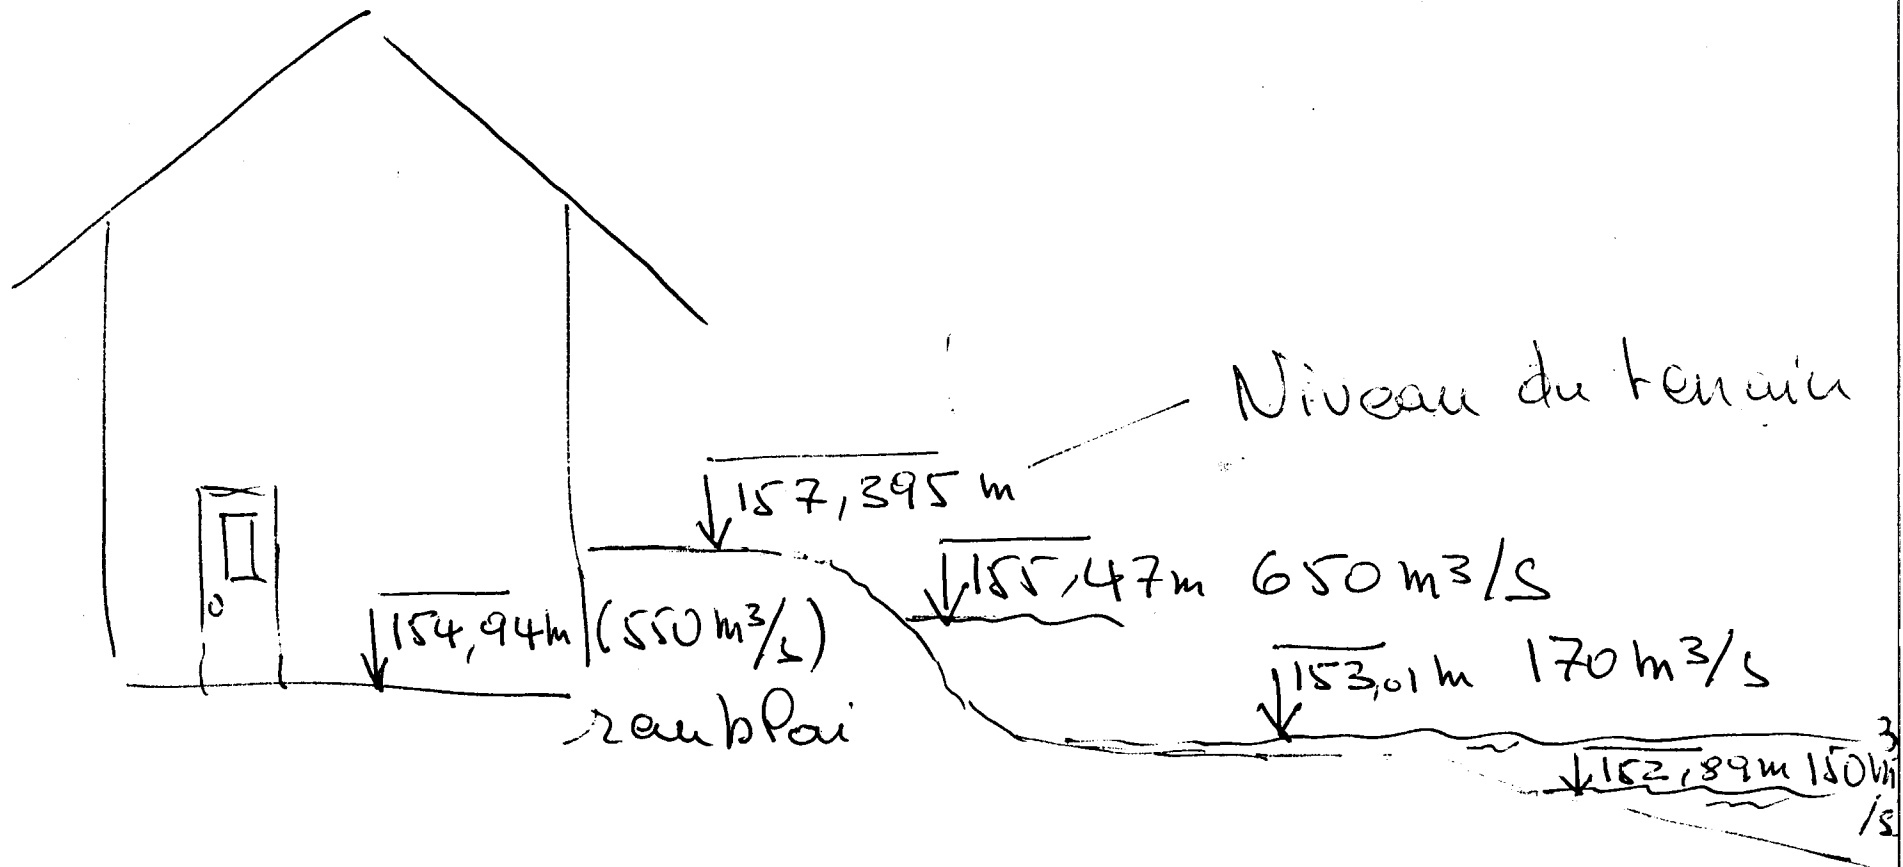 Niveau du terrain
157,395 m
155,47m 650 m³/s
154,94m (550 m³/s)
153,01 m 170 m³/s
remblai
152,89m 150 m³/s